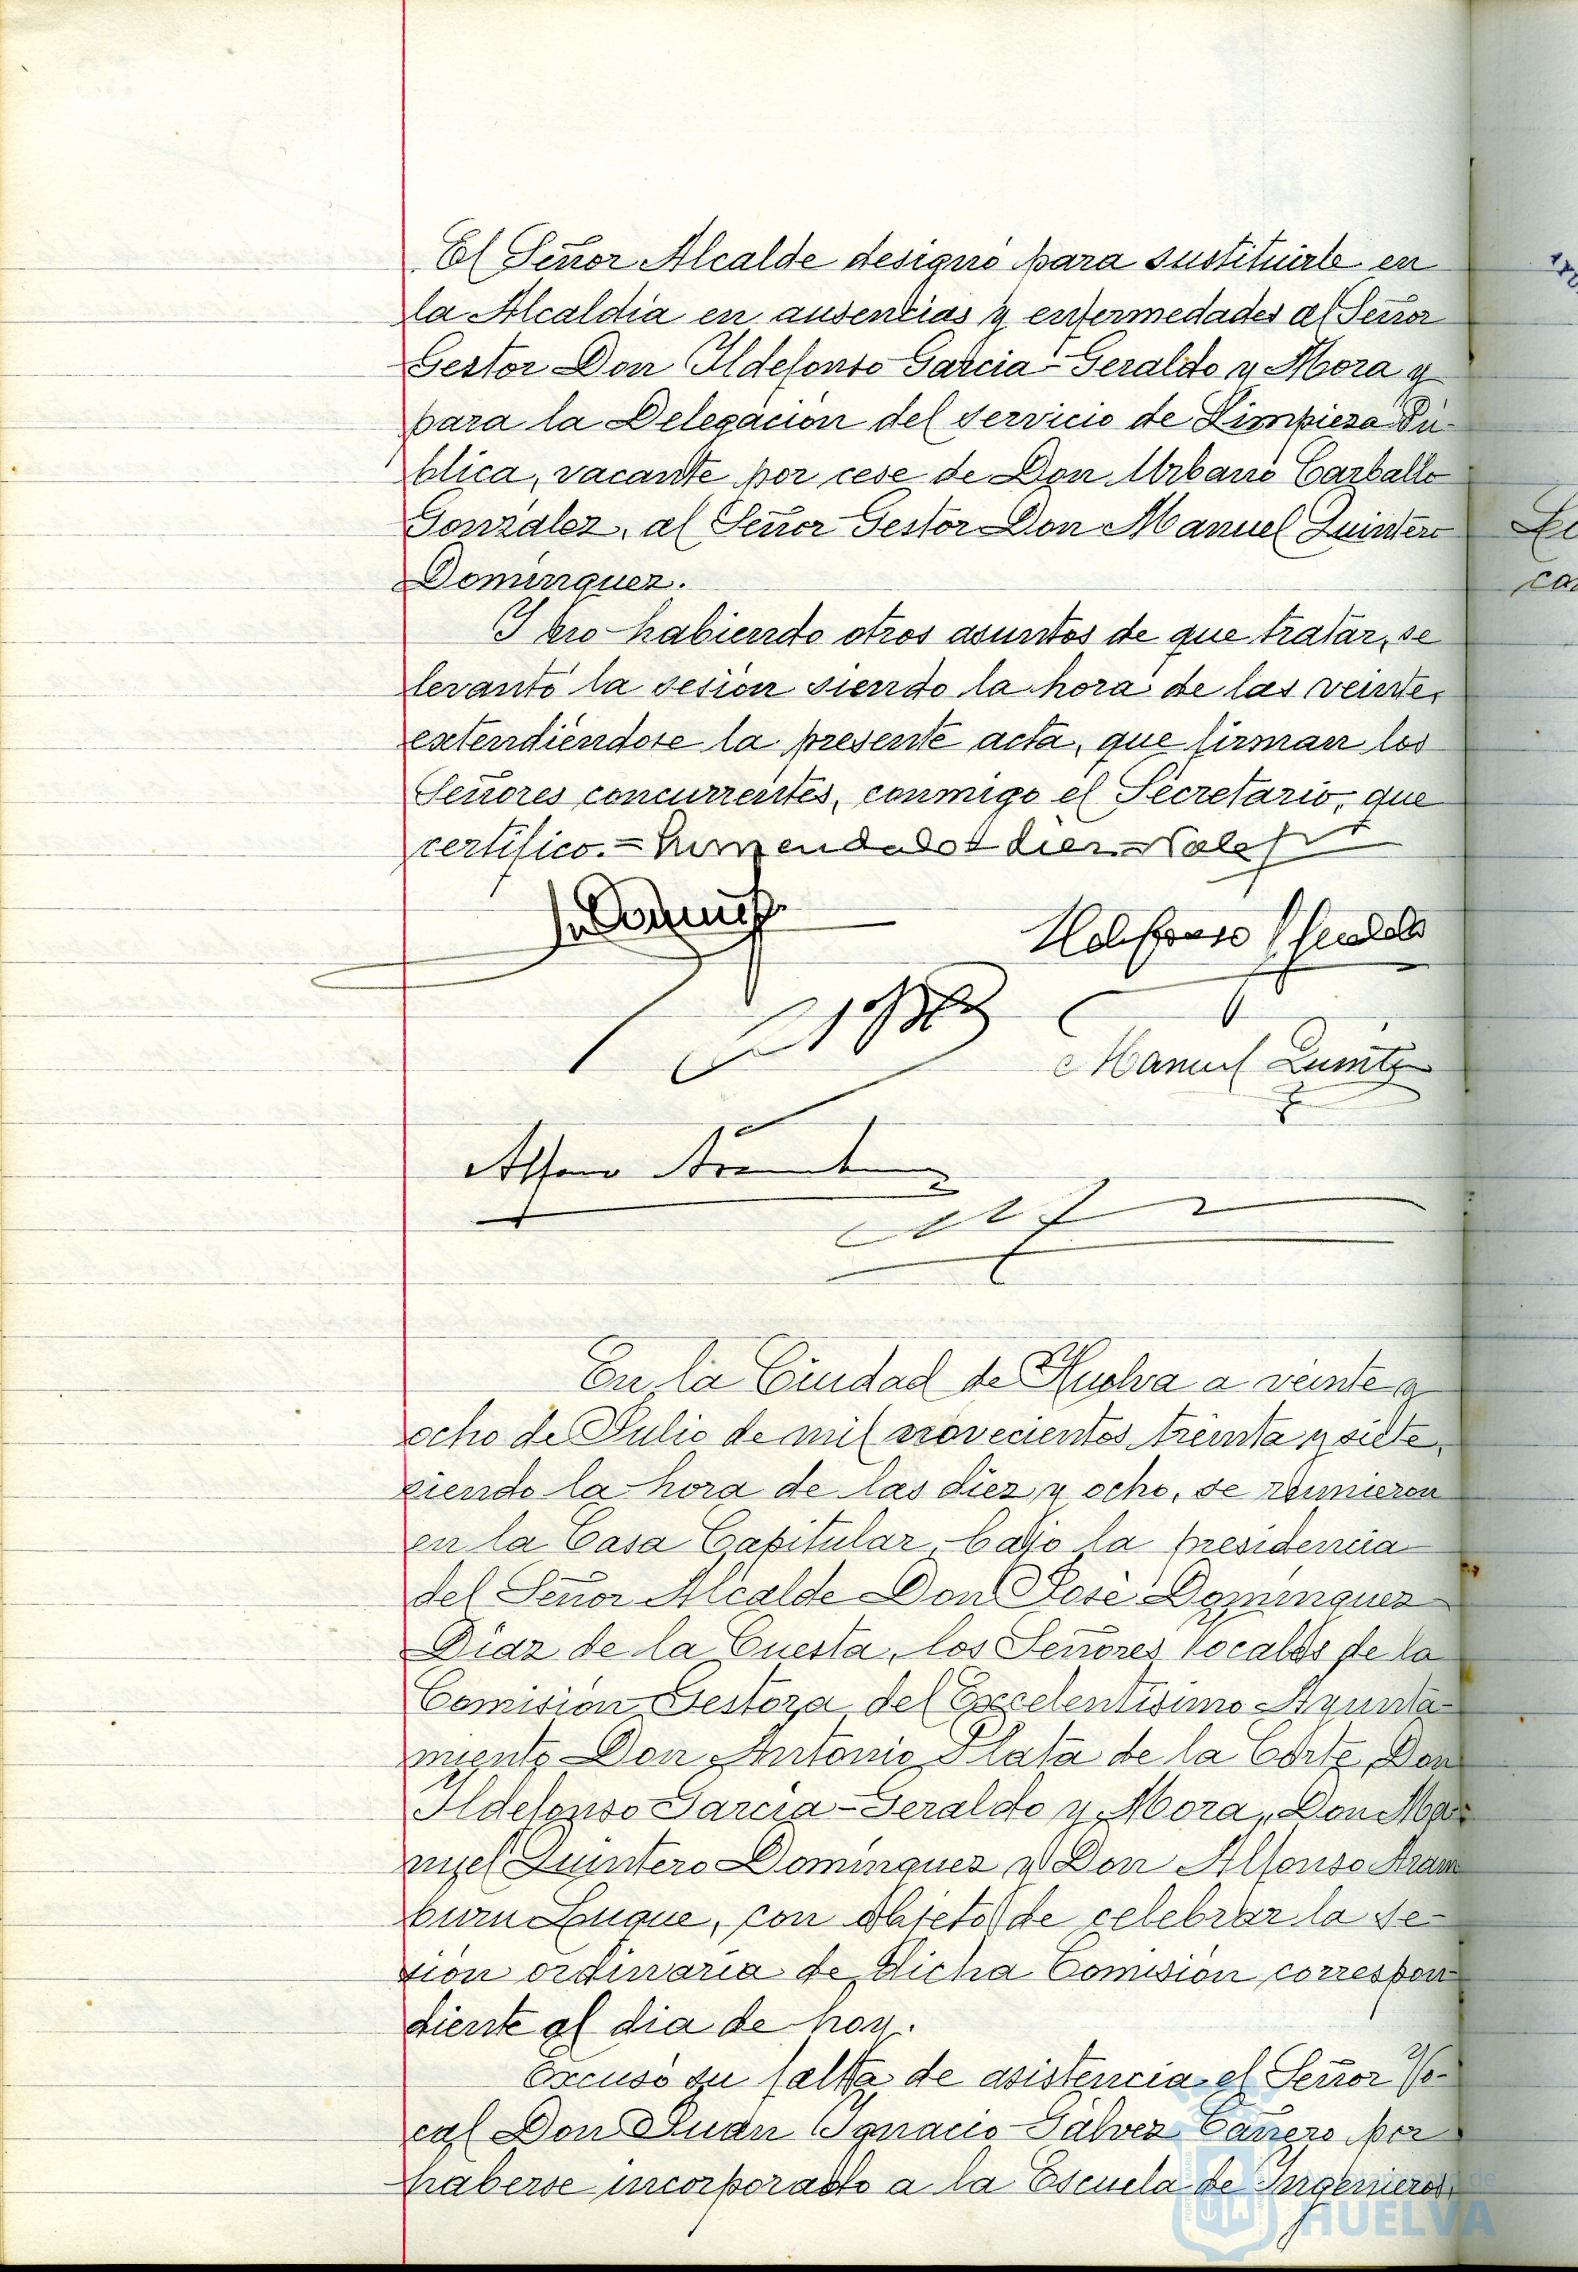 El Señor Alcalde designó para sustituirle en
la Alcaldía en ausencias y enfermedades al Señor
Gestor Don Ildefonso Garcia-Geraldo y Mora y
para la Delegación del servicio de Limpieza Pú-
blica, vacante por cese de Don Urbano Carballo
González, al Señor Gestor Don Manuel Quintero
Dominguez.
Y no habiendo otros asuntos de que tratar, se
levantó la sesión siendo la hora de las veinte,
extendiéndose la presente acta, que firman los
Señores concurrentes, conmigo el Secretario, que
certifico.=
Manuel Quintero
En la Ciudad de Huelva a veinte y
ocho de Julio de mil novecientos treinta y siete,
siendo la hora de las diez y ocho, se reunieron
en la Casa Capitular, bajo la presidencia
del Señor Alcalde Don José Dominguez
Diaz de la Cuesta, los Señores Vocales de la
Comisión Gestora del Excelentísimo Ayunta-
miento Don Antonio Plata de la Corte, Don
Ildefonso Garcia-Geraldo y Mora, Don Ma-
nuel Quintero Dominguez y Don Alfonso Aram
buru Luque, con objeto de celebrar la se-
sión ordinaria de dicha Comisión correspon
diente al dia de hoy.
Excusó su falta de asistencia el Señor Vo-
cal Don Juan Ignacio Gálvez Cañero por
haberse incorporado a la Escuela de Ingenieros
HUELVA